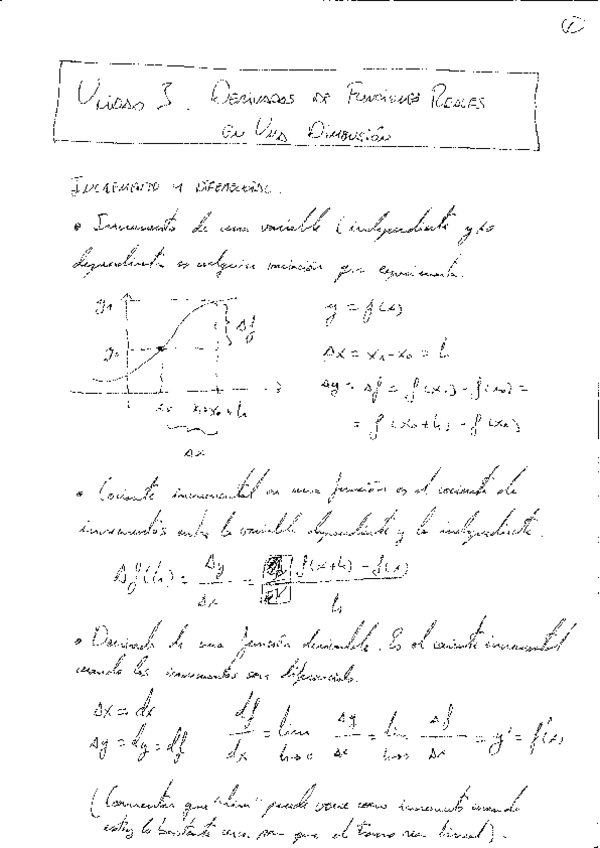 ①
UNIDAD 3. DERIVADAS DE FUNCIONES REALES
EN UNA DIMENSIÓN
INCREMENTO Y DIFERENCIAL.
• Incremento de una variable (independiente y/o
dependiente es cualquier variación que experimenta.
y₁
Δf
y₀
x₀ x₁=x₀+h
Δx
y = f(x)
Δx = x₁-x₀ = h
Δy = Δf = f(x₁) - f(x₀) =
= f(x₀+h) - f(x₀)
• Cociente incremental en una función es el cociente de
incrementos entre la variable dependiente y la independiente.
Δf(h) = Δy/Δx = f(x+h) - f(x)/h
• Derivada de una función derivable. Es el cociente incremental
cuando los incrementos son diferenciales.
Δx = dx
Δy = dy = df
df/dx = lim h→0 Δy/Δx = lim h→0 Δf/Δx = y' = f'(x)
(Comentar que "h" puede verse como incremento cuando
estoy lo bastante cerca para que el tramo sea lineal).